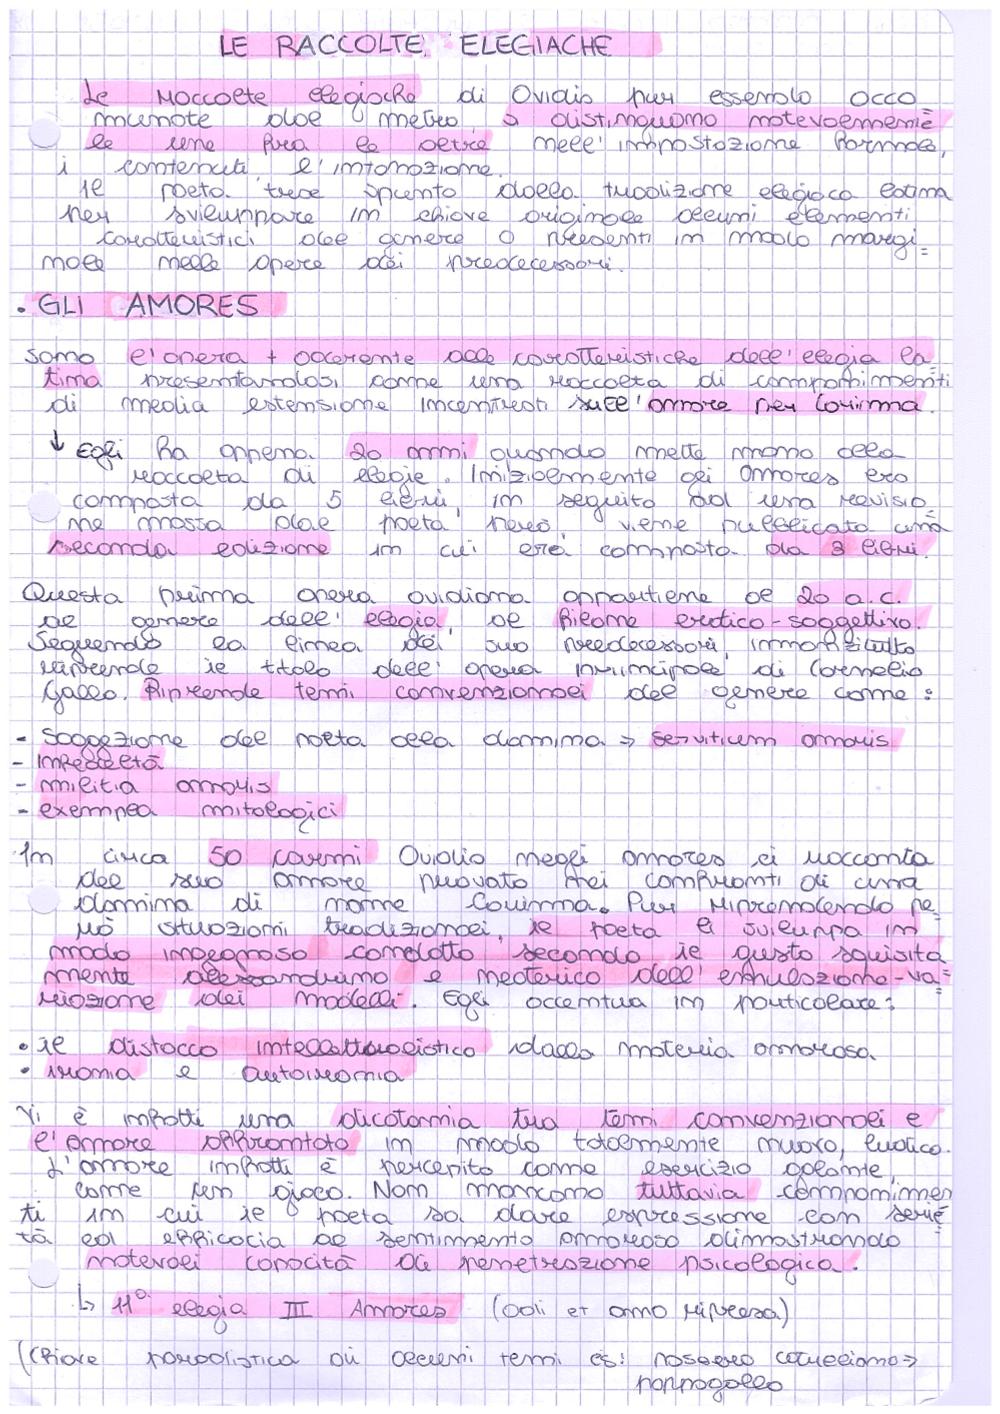 LE RACCOLTE ELEGIACHE
Le raccolte elegiache di Ovidio pur essendo acco
munate dal metro, si distinguono notevolmente
le une fra le altre nell'impostazione formale,
i contenuti, l'intonazione.
Il poeta trae spunto dalla tradizione elegiaca latina
per sviluppare in chiave originale alcuni elementi
caratteristici del genere o presenti in modo margi=
nale nelle opere dei predecessori.
• GLI AMORES
sono l'opera + aderente alle caratteristiche dell'elegia la
tina presentandosi come una raccolta di componimenti
di media estensione incentrati sull'amore per Corinna.
↓ Egli ha appena 20 anni quando mette mano alla
raccolta di elegie. Inizialmente gli Amores era
composta da 5 libri, in seguito ad una revisio
ne mossa dal poeta però, viene pubblicata una
seconda edizione in cui era composta da 3 libri.
Questa prima opera ovidiana appartiene al 20 a.c.
al genere dell'elegia, al filone erotico-soggettivo.
Seguendo la linea dei suoi predecessori, innanzitutto
riprende il titolo dell'opera principale di Cornelio
Gallo. Riprende temi convenzionali del genere come:
- soggezione del poeta alla domina ⇒ servitium amoris
- infedeltà
- militia amoris
- exempla mitologici
In circa 50 carmi Ovidio negli amores ci racconta
del suo amore provato nei confronti di una
domina di nome Corinna. Pur riprendendo pe
rò situazioni tradizionali, il poeta le sviluppa in
modo ingegnoso condotto secondo il gusto squisita
mente alessandrino e neoterico dell'emulazione-va=
riazione dei modelli. Egli accentua in particolare:
• il distacco intellettualistico dalla materia amorosa
• ironia e autoironia
Vi è infatti una dicotomia tra temi convenzionali e
l'amore affrontato in modo totalmente nuovo, ludico.
L'amore infatti è percepito come esercizio galante,
come un gioco. Non mancano tuttavia componimen
ti in cui il poeta sa dare espressione con serie
tà ed efficacia al sentimento amoroso dimostrando
notevoli capacità di penetrazione psicologica.
↳ 11° elegia III Amores (odi et amo ripresa)
(Chiave parodistica di alcuni temi es: passero catulliano ⇒
pappagallo